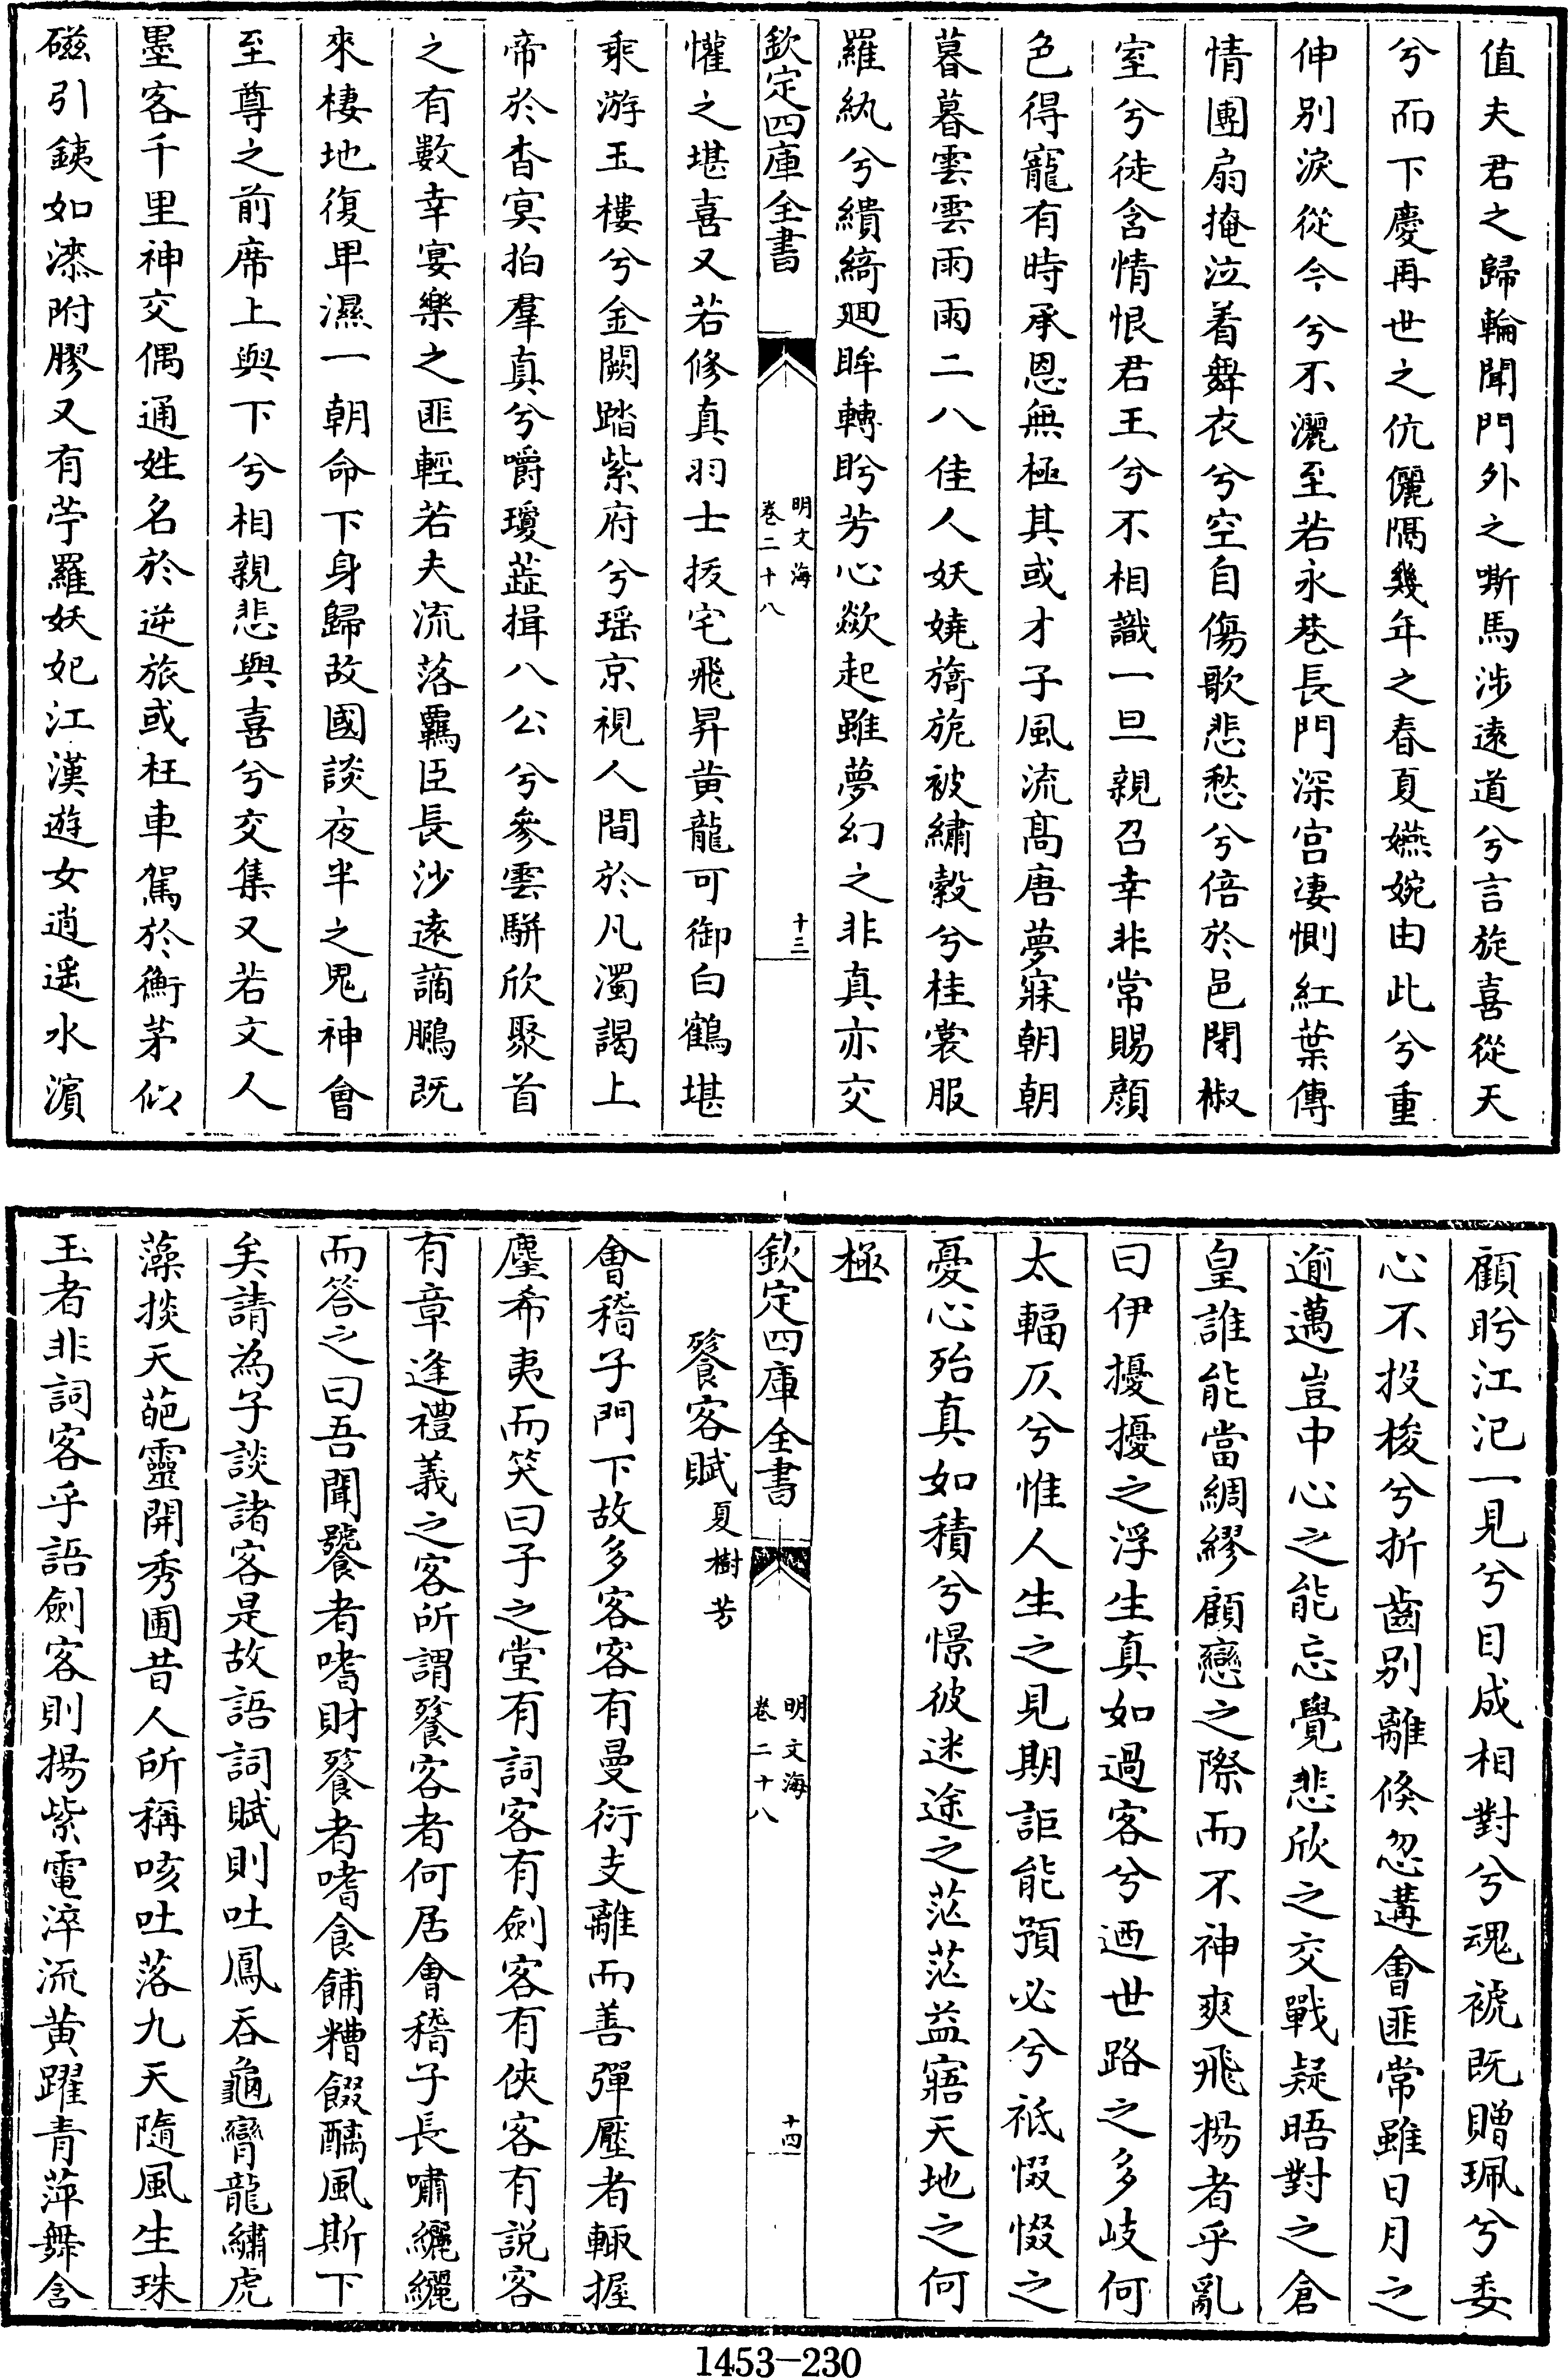 值夫君之歸輪聞門外之嘶馬涉遠道兮言旋喜從天
兮而下慶再世之伉儷隅幾年之春夏嬿婉由此兮重
伸别淚從今兮不灑至若永巷長門深宫凄惻紅葉傳
情團扇掩泣着舞衣兮空自傷歌悲愁兮倍於邑閉椒
室兮徒含情恨君王兮不相識一旦親召幸非常賜顔
色得寵有時承恩無極其或才子風流髙唐夢寐朝朝
暮暮雲雲雨雨二八佳人妖嬈旖旎被繡縠兮桂裳服
羅紈兮繢綺廻眸轉盻芳心歘起雖夢幻之非真亦交
欽定四庫全書
明文海
卷二十八
十三
懽之堪喜又若修真羽士抜宅飛昇黄龍可御白鶴堪
乘游玉樓兮金闕踏紫府兮瑶京視人間於凡濁謁上
帝於杳㝠拍羣真兮嚼瓊蘂揖八公兮參雲駢欣聚首
之有數幸宴樂之匪輕若夫流落羈臣長沙遠謫鵩既
來棲地復卑濕一朝命下身歸故國談夜半之鬼神會
至尊之前席上與下兮相親悲與喜兮交集又若文人
墨客千里神交偶通姓名於逆旅或枉車駕於衡茅似
磁引銕如漆附膠又有苧羅妖妃江漢遊女逍遥水濵
顧盻江汜一見兮目成相對兮魂褫既贈珮兮委
心不投梭兮折齒别離倐忽遘會匪常雖日月之
逾邁豈中心之能忘覺悲欣之交戰疑晤對之倉
皇誰能當綢繆顧戀之際而不神爽飛揚者乎亂
曰伊擾擾之浮生真如過客兮迺世路之多岐何
太輻仄兮惟人生之見期詎能預必兮祗惙惙之
憂心殆真如積兮憬彼迷途之茫茫益寤天地之何
極
欽定四庫全書
明文海
卷二十八
十四
餮客賦夏樹芳
會稽子門下故多客客有曼衍支離而善彈壓者輙握
麈希夷而笑曰子之堂有詞客有劍客有俠客有説客
有章逢禮義之客所謂餮客者何居會稽子長嘯纚纚
而答之曰吾聞饕者嗜財餮者嗜食餔糟餟醨風斯下
矣請為子談諸客是故語詞賦則吐鳳吞龜臠龍繡虎
藻掞天葩靈開秀圃昔人所稱咳吐落九天隨風生珠
玉者非詞客乎語劍客則揚紫電淬流黄躍青萍舞含
1453-230